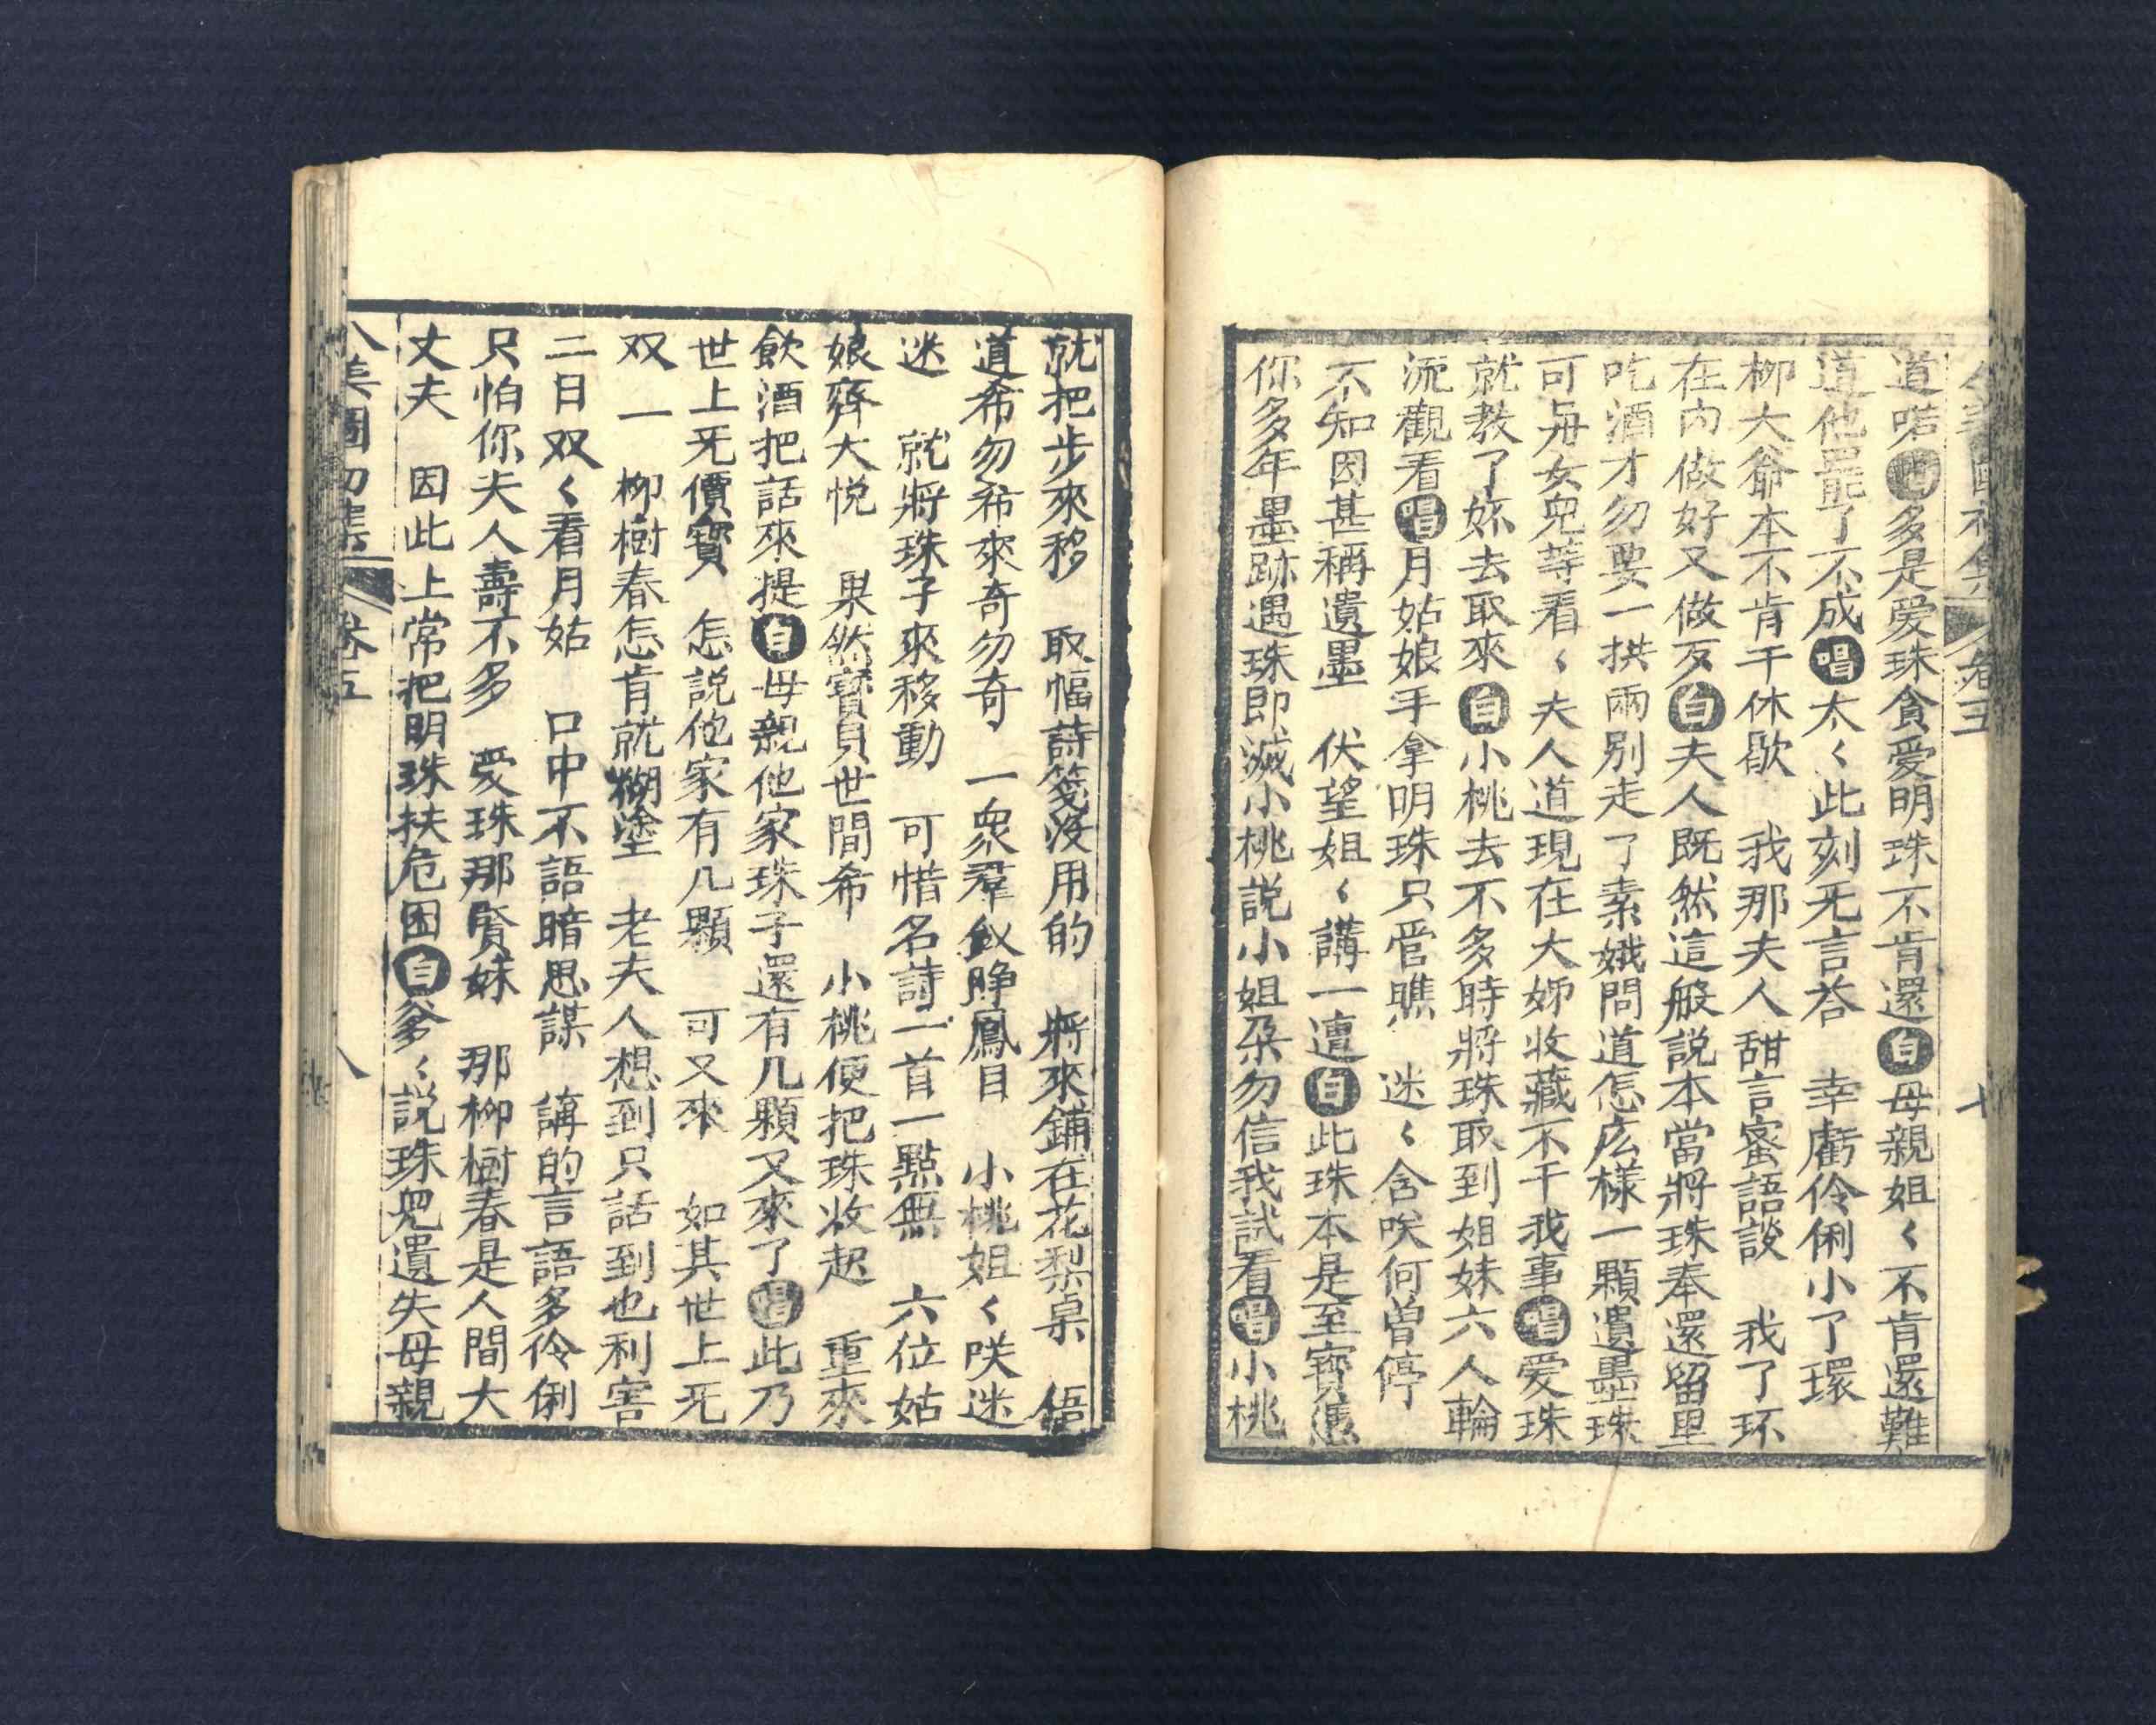 八美圖初集 卷五 七
道喏唱多是爱珠貪爱明珠不肯還白母親姐〻不肯還難
道他罷了不成唱太〻此刻无言荅 幸虧伶俐小了環
柳大爺本不肯干休歇 我那夫人甜言蜜語談 我了环
在内做好又做反白夫人既然這般説本當將珠奉還留里
吃酒才勿要一拱兩別走了素娥問道怎庅樣一顆遺墨珠
可毋女兒等看〻夫人道現在大姊收藏不干我事唱爱珠
就教了妳去取來白小桃去不多時將珠取到姐妹六人輪
流觀看唱月姑娘手拿明珠只管瞧 迷〻含咲何曾停
不知因甚稱遺墨 伏望姐〻講一遭白此珠本是至寶憑
你多年墨跡遇珠即滅小桃説小姐朶勿信我試看唱小桃
就把步來移 取幅詩箋沒用的 將來鋪在花梨桌 偣
道希勿希來奇勿奇 一衆羣釵睜鳳目 小桃姐〻咲迷
迷 就將珠子來移動 可惜名詩一首一點無 六位姑
娘齊大悦 果然寳貝世間希 小桃便把珠收起 重來
飲酒把話來提白母親他家珠子還有几顆又來了唱此乃
世上旡價寶 怎説他家有几顆 可又來 如其世上旡
双一 柳樹春怎肯就糊塗 老夫人想到只話到也利害
二日双〻看月姑 口中不語暗思謀 講的言語多伶俐
只怕你夫人壽不多 爱珠那賢妹 那柳樹春是人間大
丈夫 因此上常把明珠扶危困白爹〻説珠兒遺失母親
八美圖初集 卷五 八